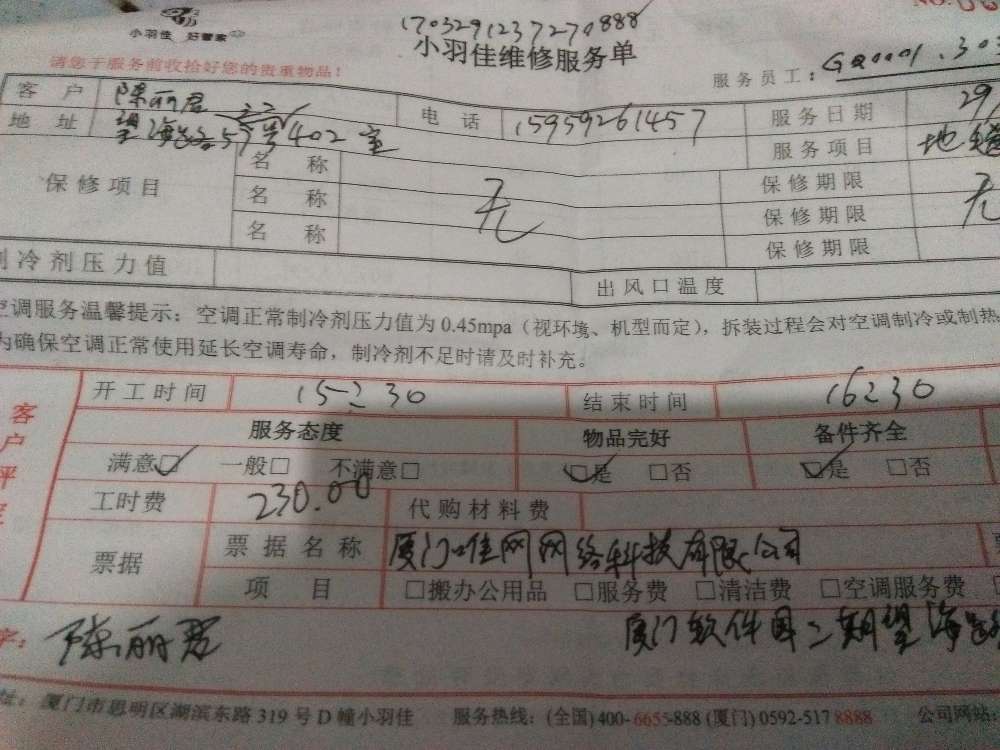 小羽佳 好管家
NO:
1703291237270888
小羽佳维修服务单
请您于服务前收拾好您的贵重物品！
服务员工：GQ0001.303
客户 陈丽君 电话 15959261457 服务日期 29
地址 望海路57号402室 服务项目
保修项目 名称 无 保修期限 无
名称 保修期限
名称 保修期限
制冷剂压力值 出风口温度
空调服务温馨提示：空调正常制冷剂压力值为 0.45mpa（视环境、机型而定），拆装过程会对空调制冷或制热
为确保空调正常使用延长空调寿命，制冷剂不足时请及时补充。
开工时间 15:30 结束时间 16:30
客户评
服务态度 物品完好 备件齐全
满意□ 一般□ 不满意□ □是 □否 □是 □否
工时费 230.00 代购材料费
票据 票据名称 厦门佳网网络科技有限公司
项目 □搬办公用品 □服务费 □清洁费 □空调服务费
字：陈丽君 厦门软件园二期望海路
地址：厦门市思明区湖滨东路 319 号 D 幢小羽佳 服务热线：(全国)400-6655-888 (厦门) 0592-517 8888 公司网站：